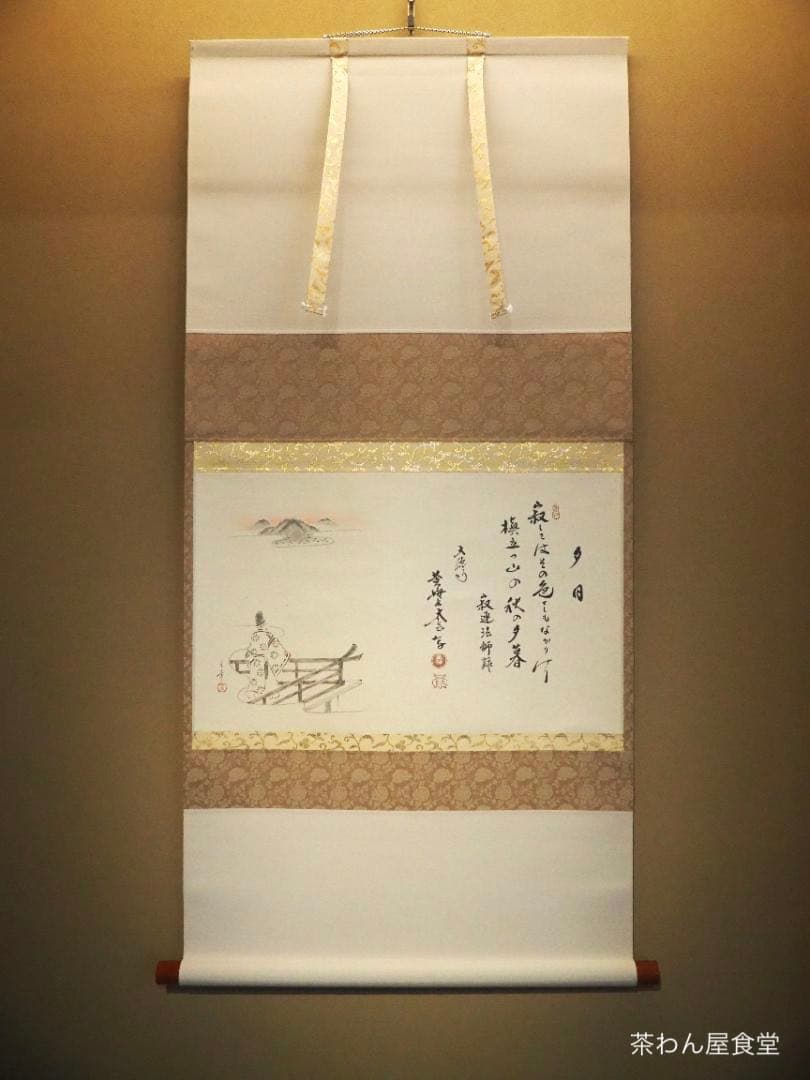 夕日
寂しさはその色としもなかりけり
槇立つ山の秋の夕暮
寂蓮法師詠
茶わん屋食堂